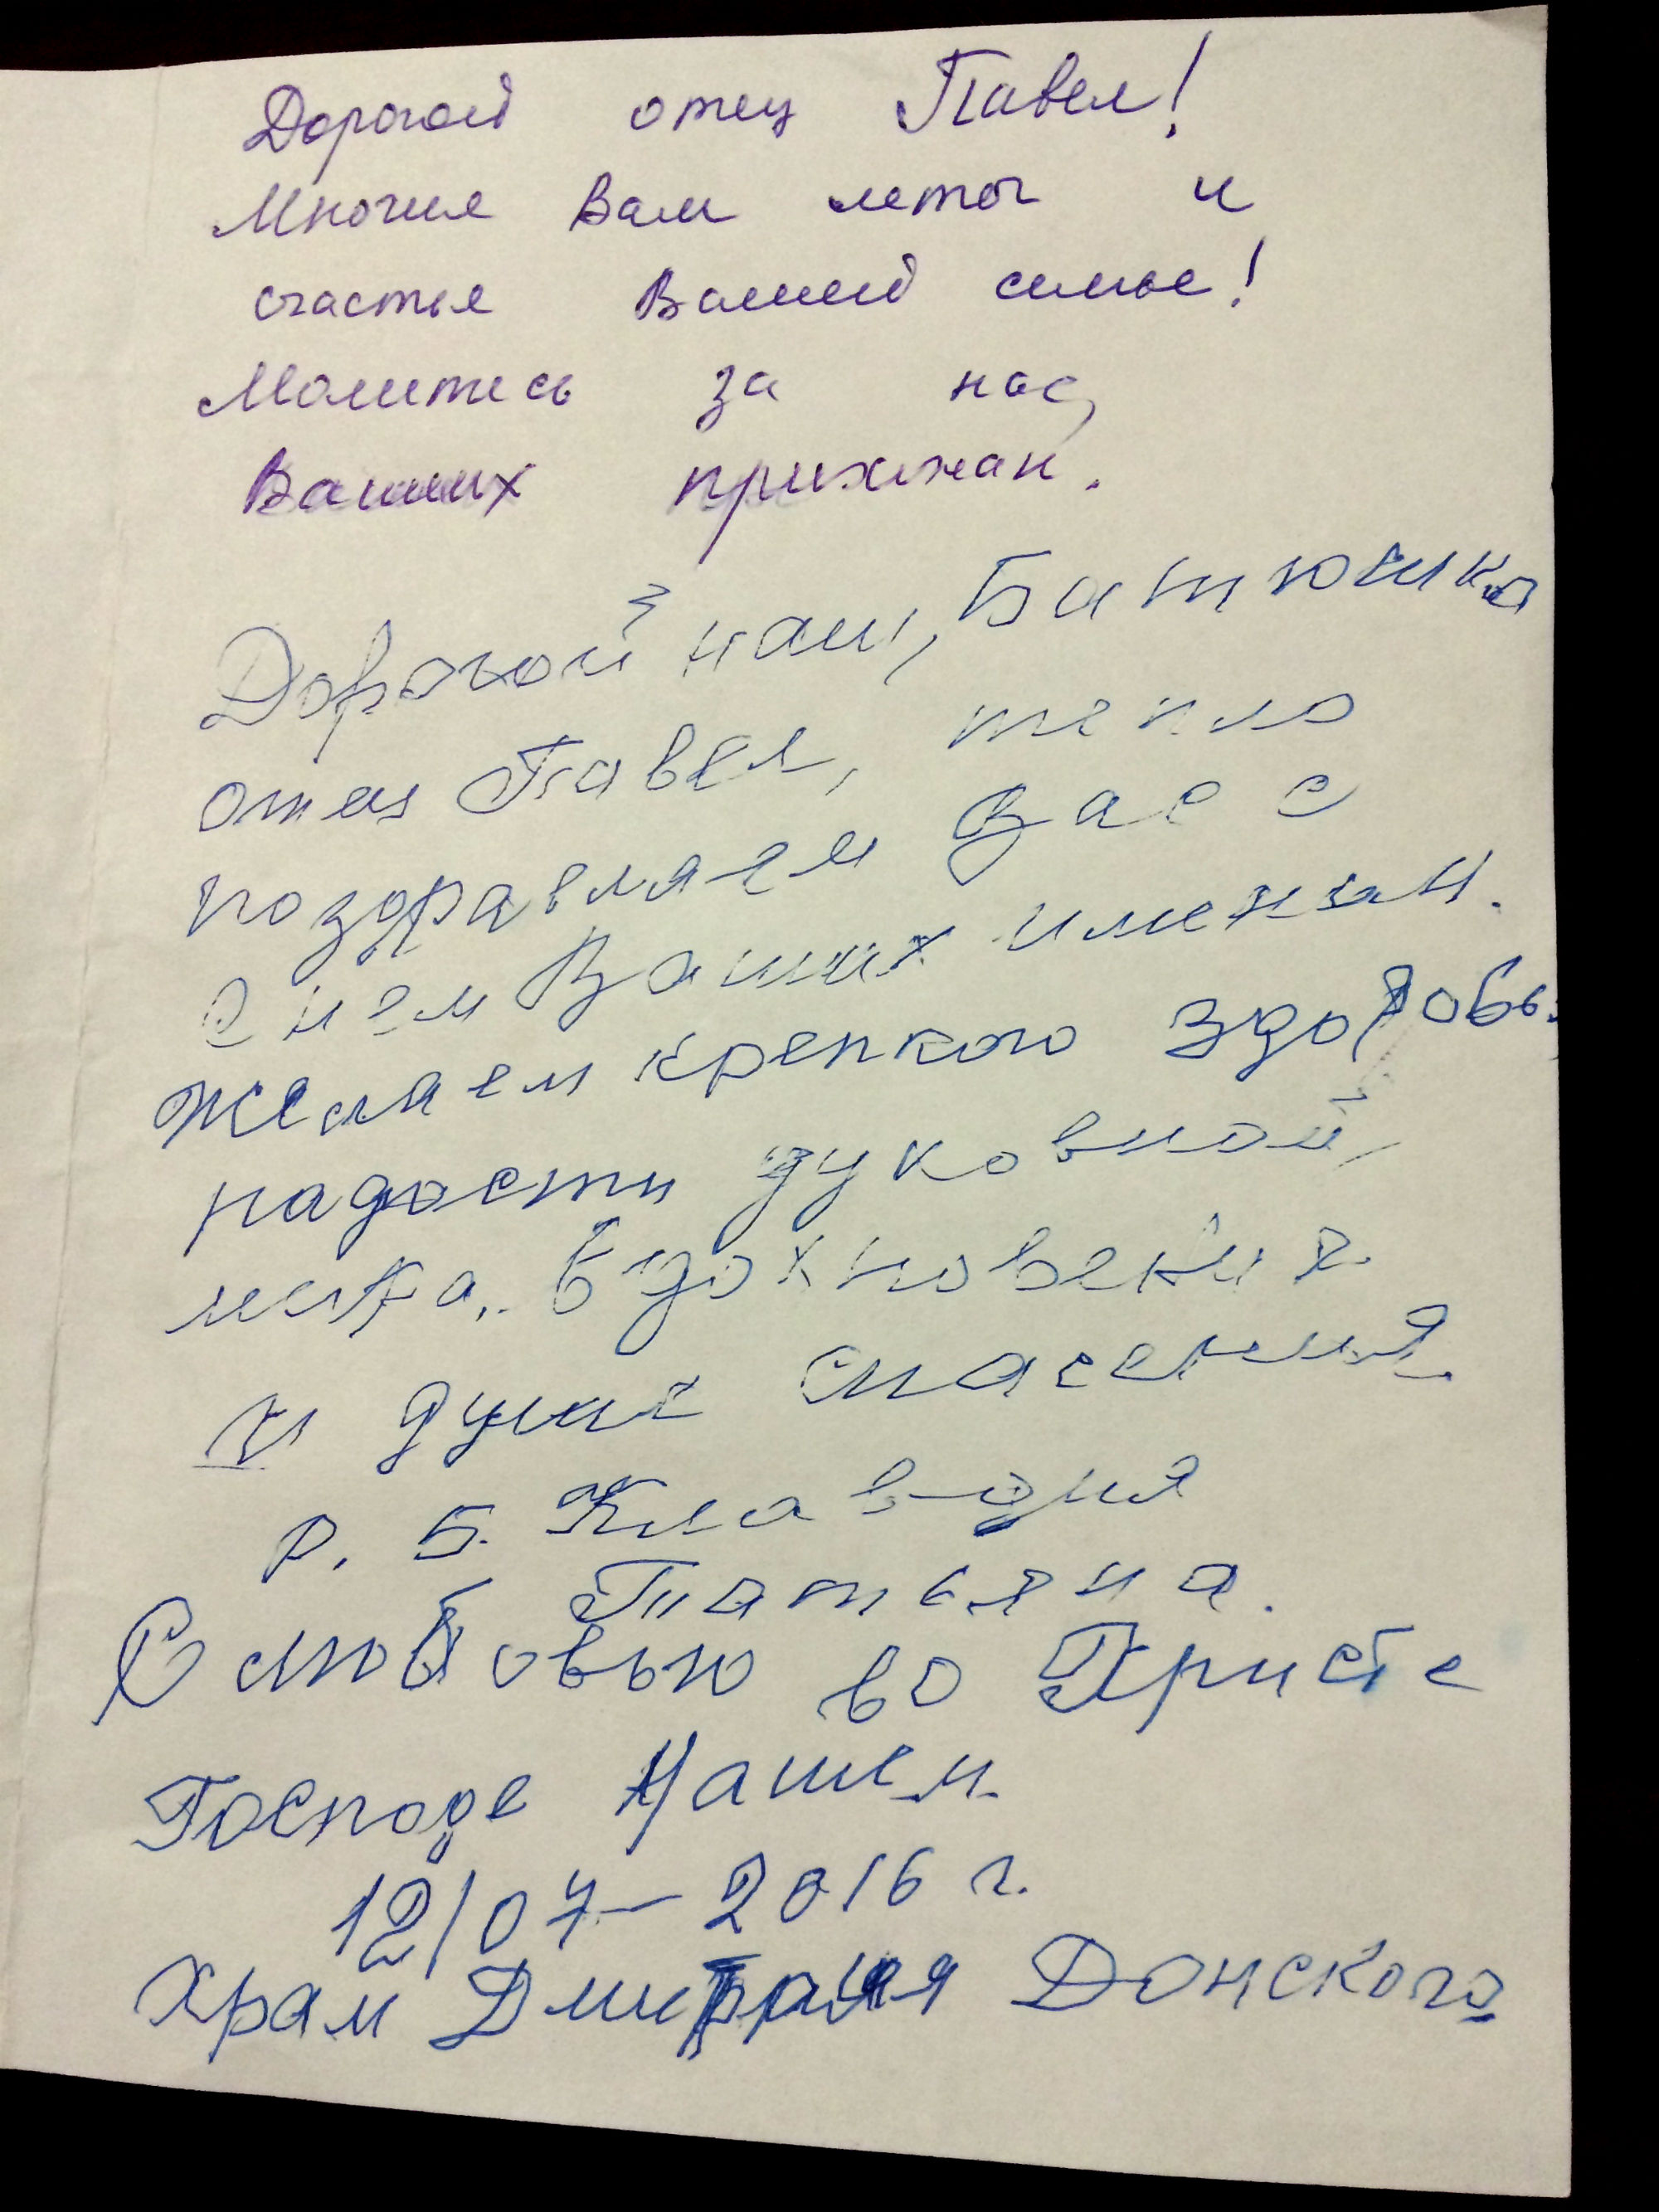 Дорогой отец Павел!
Многия Вам лета и
счастья Вашей семье!
Молитесь за нас,
Ваших прихожан.
Дорогой наш, Батюшка
отец Павел, тепло
поздравляем Вас с
Днем Ваших именин.
Желаем крепкого здоровья
радости духовной,
мира, вдохновения
и душе спасения
Р. Б. Клавдия
Татьяна.
С любовью во Христе
Господе Нашем.
12/07-2016 г.
Храм Дмитрия Донского